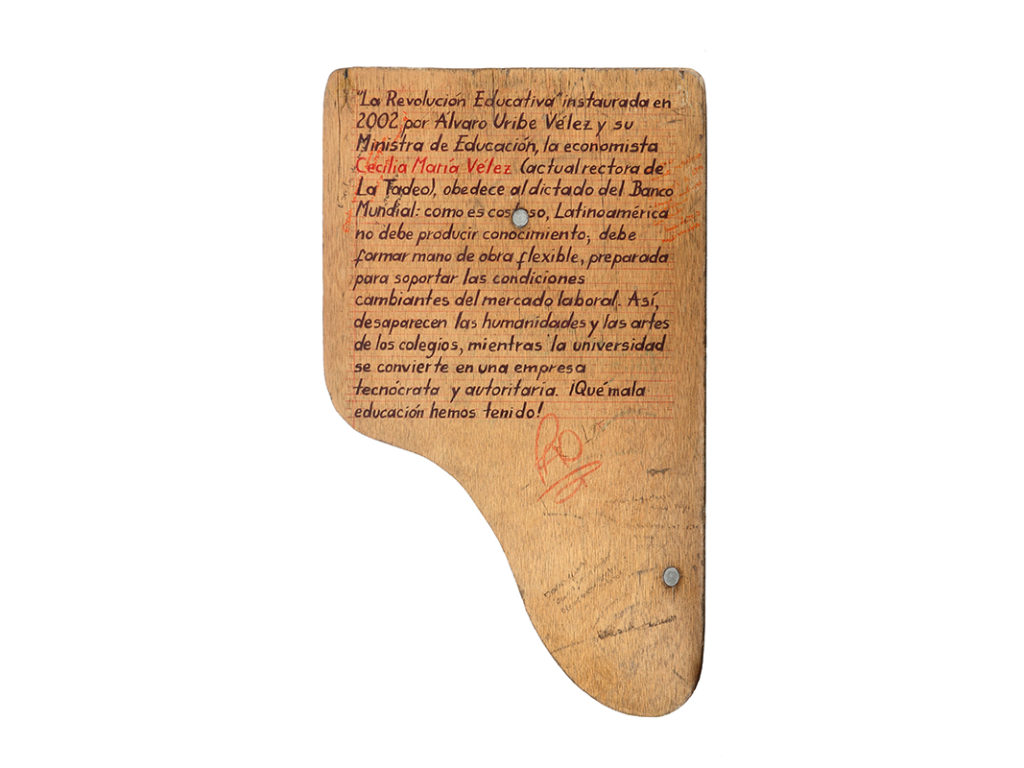 "La Revolución Educativa" instaurada en
2002 por Álvaro Uribe Vélez y su
Ministra de Educación, la economista
Cecilia María Vélez (actual rectora de
La Tadeo), obedece al dictado del Banco
Mundial: como es costoso, Latinoamérica
no debe producir conocimiento, debe
formar mano de obra flexible, preparada
para soportar las condiciones
cambiantes del mercado laboral. Así,
desaparecen las humanidades y las artes
de los colegios, mientras la universidad
se convierte en una empresa
tecnócrata y autoritaria. ¡Qué mala
educación hemos tenido!